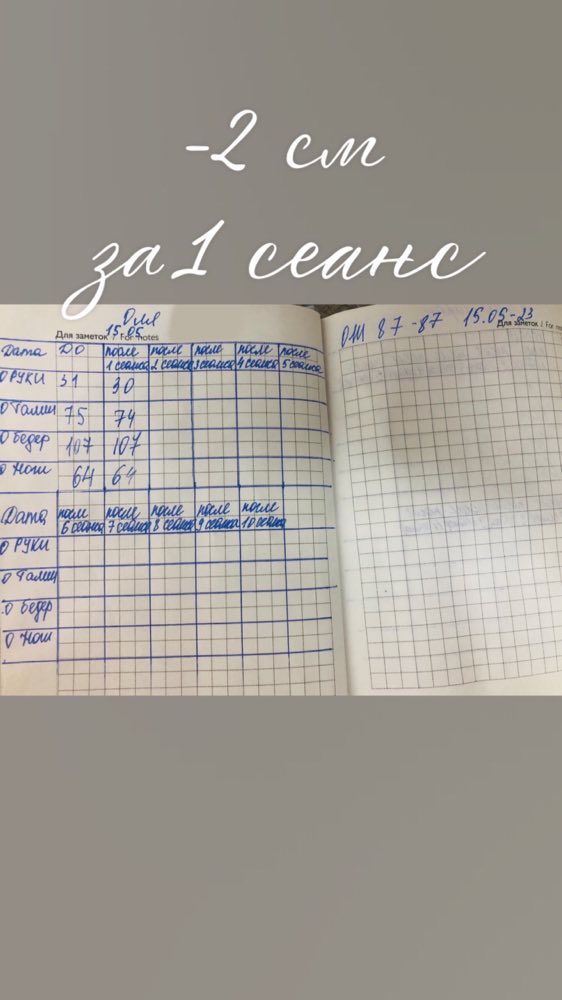 -2 см
за 1 сеанс
Оля
15.05
Для заметок / For notes
Дата ДО после 1 сеанса после 2 сеанса после 3 сеанса после 4 сеанса после 5 сеанса
О РУКИ 31 30
О Талии 75 74
О бедер 107 107
О Ноги 64 64
Дата после 6 сеанса после 7 сеанса после 8 сеанса после 9 сеанса после 10 сеанса
О РУКИ
О Талии
О бедер
О Ноги
87 - 87 15.05-23
Для заметок / For